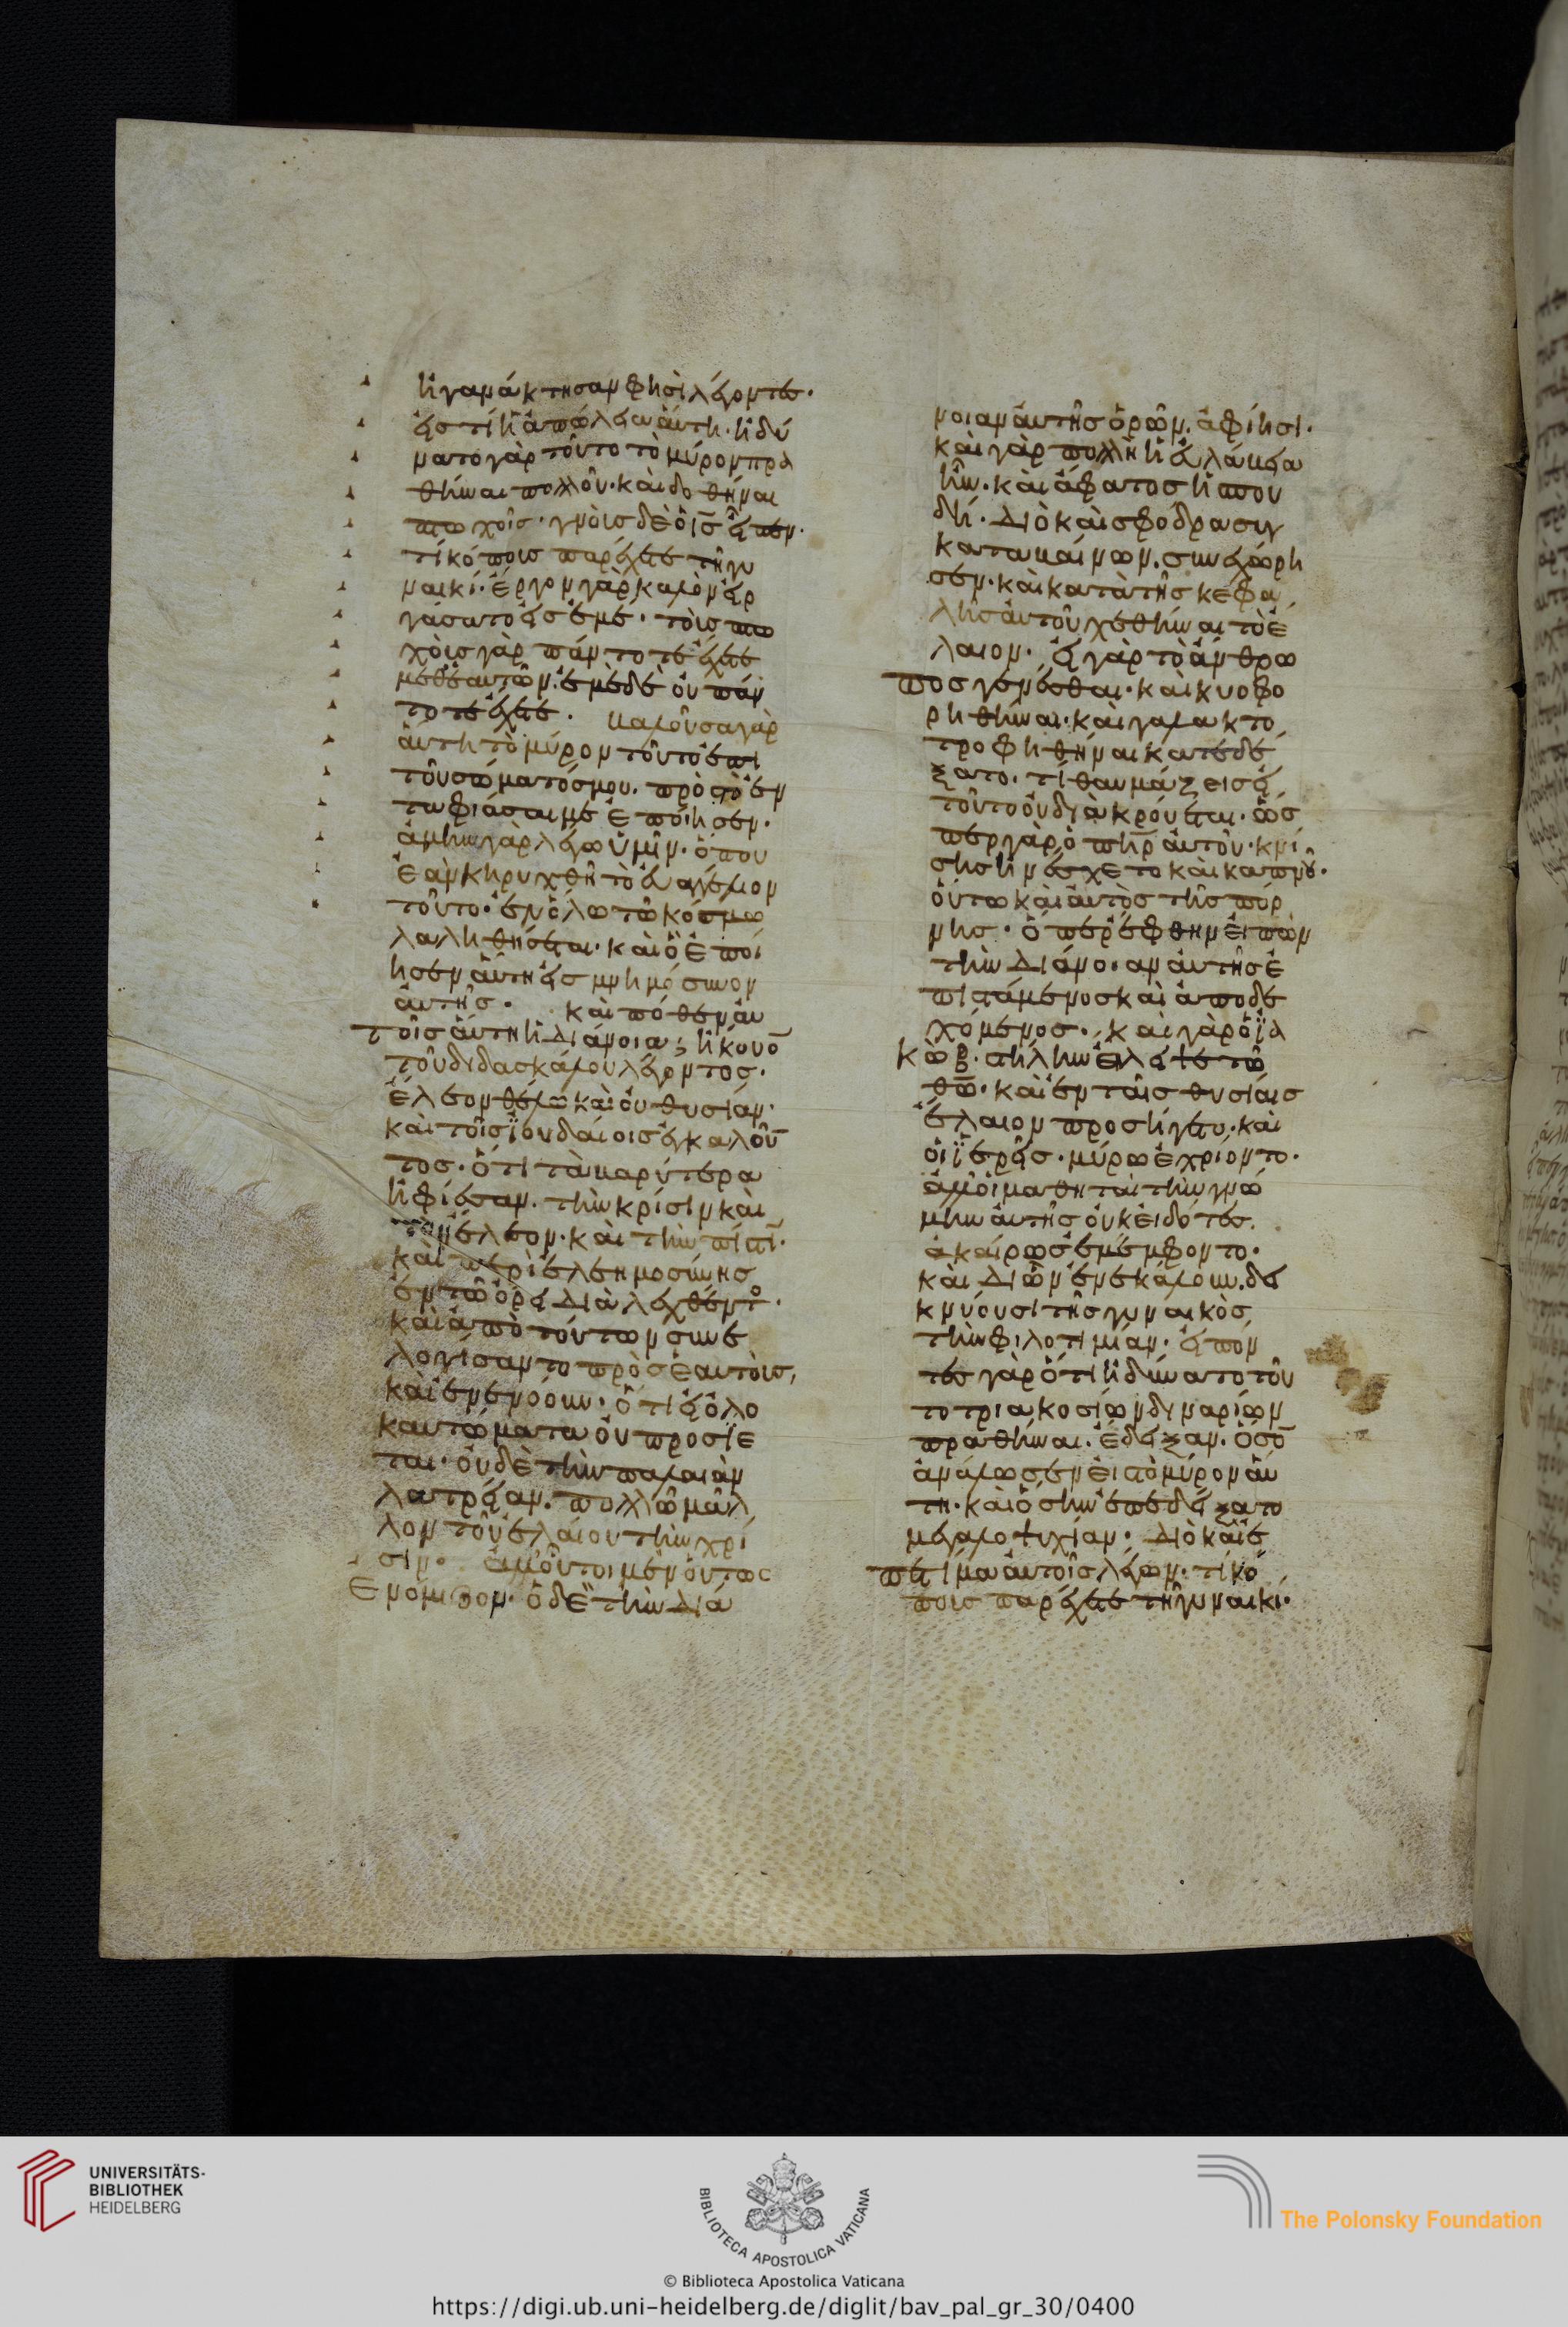 ἠγανάκτησαν φησὶ λέγοντες·
εἰς τί ἡ ἀπώλεια αὕτη· ἠδύ
νατο γὰρ τοῦτο τὸ μύρον πρα
θῆναι πολλοῦ· καὶ δοθῆναι
πτωχοῖς· γνοὺς δὲ ὁ ις̄ εἶπεν·
τί κόπους παρέχετε τῇ γυ
ναικί· ἔργον γὰρ καλὸν εἰρ
γάσατο εἰς ἐμέ· τοὺς πτω
χοὺς γὰρ πάντοτε ἔχετε
μεθ' ἑαυτῶν· ἐμὲ δὲ οὐ πάν
τοτε ἔχετε· βαλοῦσα γὰρ
αὕτη τὸ μύρον τοῦτο ἐπὶ
τοῦ σώματός μου· πρὸς τὸ ἐν
ταφιάσαι με ἐποίησεν·
ἀμὴν γὰρ λέγω ὑμῖν· ὅπου
ἐὰν κηρυχθῇ τὸ εὐαγγέλιον
τοῦτο· ἐν ὅλῳ τῷ κόσμῳ
λαληθήσεται· καὶ ὃ ἐποί
ησεν αὕτη εἰς μνημόσυνον
αὐτῆς· καὶ πόθεν αὐ
τοῖς αὕτη ἡ διάνοια; ἤκουο̄
τοῦ διδασκάλου λέγοντος·
ἔλεον θέλω καὶ οὐ θυσίαν·
καὶ τοῖς ἰουδαίοις ἐγκαλοῦ̄
τος· ὅτι τὰ βαρύτερα
ἠφίεσαν· τὴν κρίσιν καὶ
τὸν ἔλεον· καὶ τὴν πίστῑ·
καὶ περὶ ἐλεημοσύνης
ἐν τῷ ὄρει διαλεχθέντο·
καὶ ἀπὸ τούτων συνε
λογίσαντο πρὸς ἑαυτοὺς,
καὶ ἐνενόουν· ὅτι εἰ ὁλο
καυτώματα οὐ προσίε
ται· οὐδὲ τὴν παλαιὰν
λατρείαν· πολλῷ μᾶλ
λον τοῦ ἐλαίου τὴν χρί
σιν· ἀλλ' οὗτοι μὲν οὕτως
ἐνόμιζον· ὁ δὲ τὴν διά
νοιαν αὐτῆς ὁρῶν· ἀφίησι·
καὶ γὰρ πολλὴ ἡ εὐλάβεια
ἦν· καὶ ἄφατος ἡ σπου
δή· διὸ καὶ σφόδρα συγ
καταβαίνων· συνεχώρη
σεν· καὶ κατὰ τῆς κεφα
λῆς αὐτοῦ χεθῆναι τὸ ἔ
λαιον· εἰ γὰρ τὸ ἄνθρω
πος γενέσθαι· καὶ κυοφο
ρηθῆναι· καὶ γαλακτο
τροφηθῆναι κατεδέ
ξατο· τί θαυμάζεις εἰ
τοῦτο οὐ διακρούεται· ὥσ
περ γὰρ ὁ πη̄ρ αὐτοῦ· κνί
σης ἠνέσχετο καὶ καπνοῦ·
οὕτω καὶ αὐτὸς τῆς πόρ
νης· ὅπερ ἔφθην εἰπὼν
τὴν διάνοιαν αὐτῆς ἐ
πιστάμενος καὶ ἀποδε
χόμενος· καὶ γὰρ ὁ ἰα
κὼβ· στήλην ἤλειψε τῷ
θω̄· καὶ ἐν ταῖς θυσίαις
ἔλαιον προσήγετο· καὶ
οἱ ἱερεῖς· μύρῳ ἐχρίοντο·
ἀλλ' οἱ μαθηταὶ τὴν γνώ
μην αὐτῆς οὐκ εἰδότες,
ἀκαίρως ἐμέμφοντο·
καὶ δι' ὧν ἐνεκάλουν· δει
κνύουσι τῆς γυναικὸς
τὴν φιλοτιμίαν· εἰπόν
τες γὰρ ὅτι ἠδύνατο τοῦ
το τριακοσίων δηναρίων
πραθῆναι· ἔδειξαν· ὅσο̄
ἀνάλωσεν εἰς τὸ μύρον αὕ
τη· καὶ ὅσην ἐπεδείξατο
μεγαλοψυχίαν· διὸ καὶ ἐ
πετίμα αὐτοῖς λέγων· τί κό
πους παρέχετε τῇ γυναικί·
UNIVERSITÄTS-
BIBLIOTHEK
HEIDELBERG
BIBLIOTECA APOSTOLICA VATICANA
The Polonsky Foundation
© Biblioteca Apostolica Vaticana
https://digi.ub.uni-heidelberg.de/diglit/bav_pal_gr_30/0400